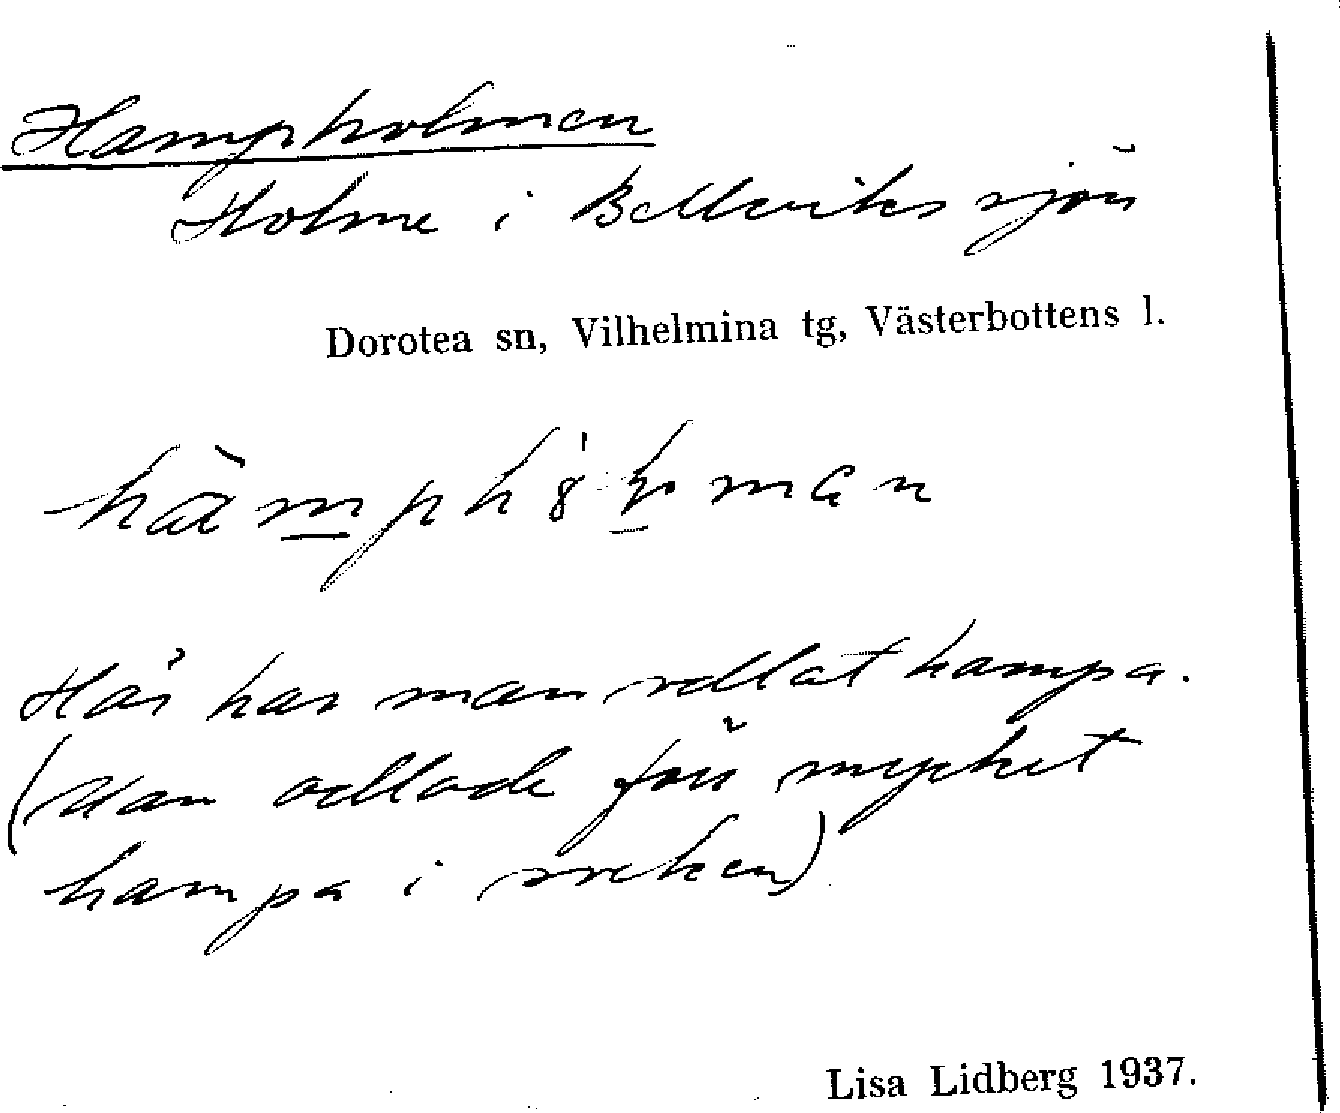 Hampholmen
Holme i Bellvikssjön
Dorotea sn, Vilhelmina tg, Västerbottens l.
Här har man odlat hampa.
(Man odlade förr mycket
hampa i socken)
Lisa Lidberg 1937.